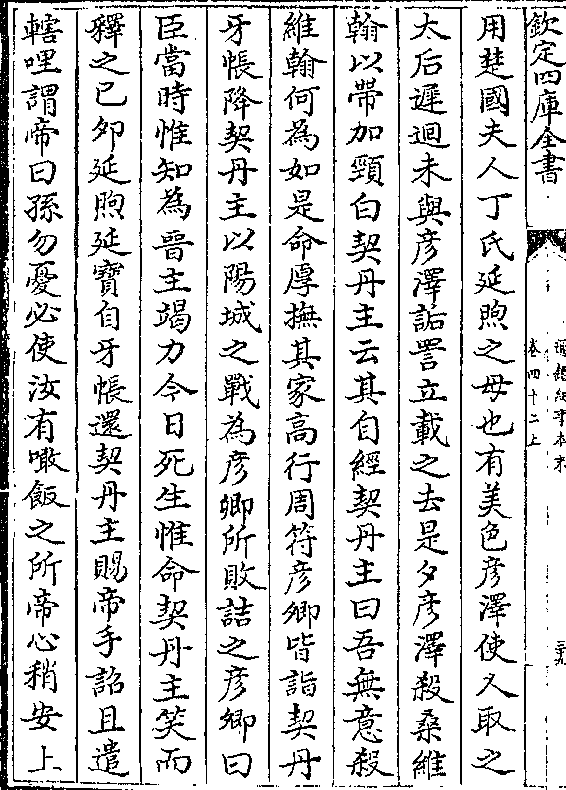 欽定四庫全書
通鑑紀事本末
卷四十二上
三十九
用楚國夫人丁氏延煦之母也有美色彥澤使人取之
太后遲迴未與彥澤詬詈立載之去是夕彥澤殺桑維
翰以帶加頸白契丹主云其自經契丹主曰吾無意殺
維翰何為如是命厚撫其家高行周符彥卿皆詣契丹
牙帳降契丹主以陽城之戰為彥卿所敗詰之彥卿曰
臣當時惟知為晉主竭力今日死生惟命契丹主笑而
釋之已夘延煦延寶自牙帳還契丹主賜帝手詔且遣
轄哩謂帝曰孫勿憂必使汝有噉飯之所帝心稍安上